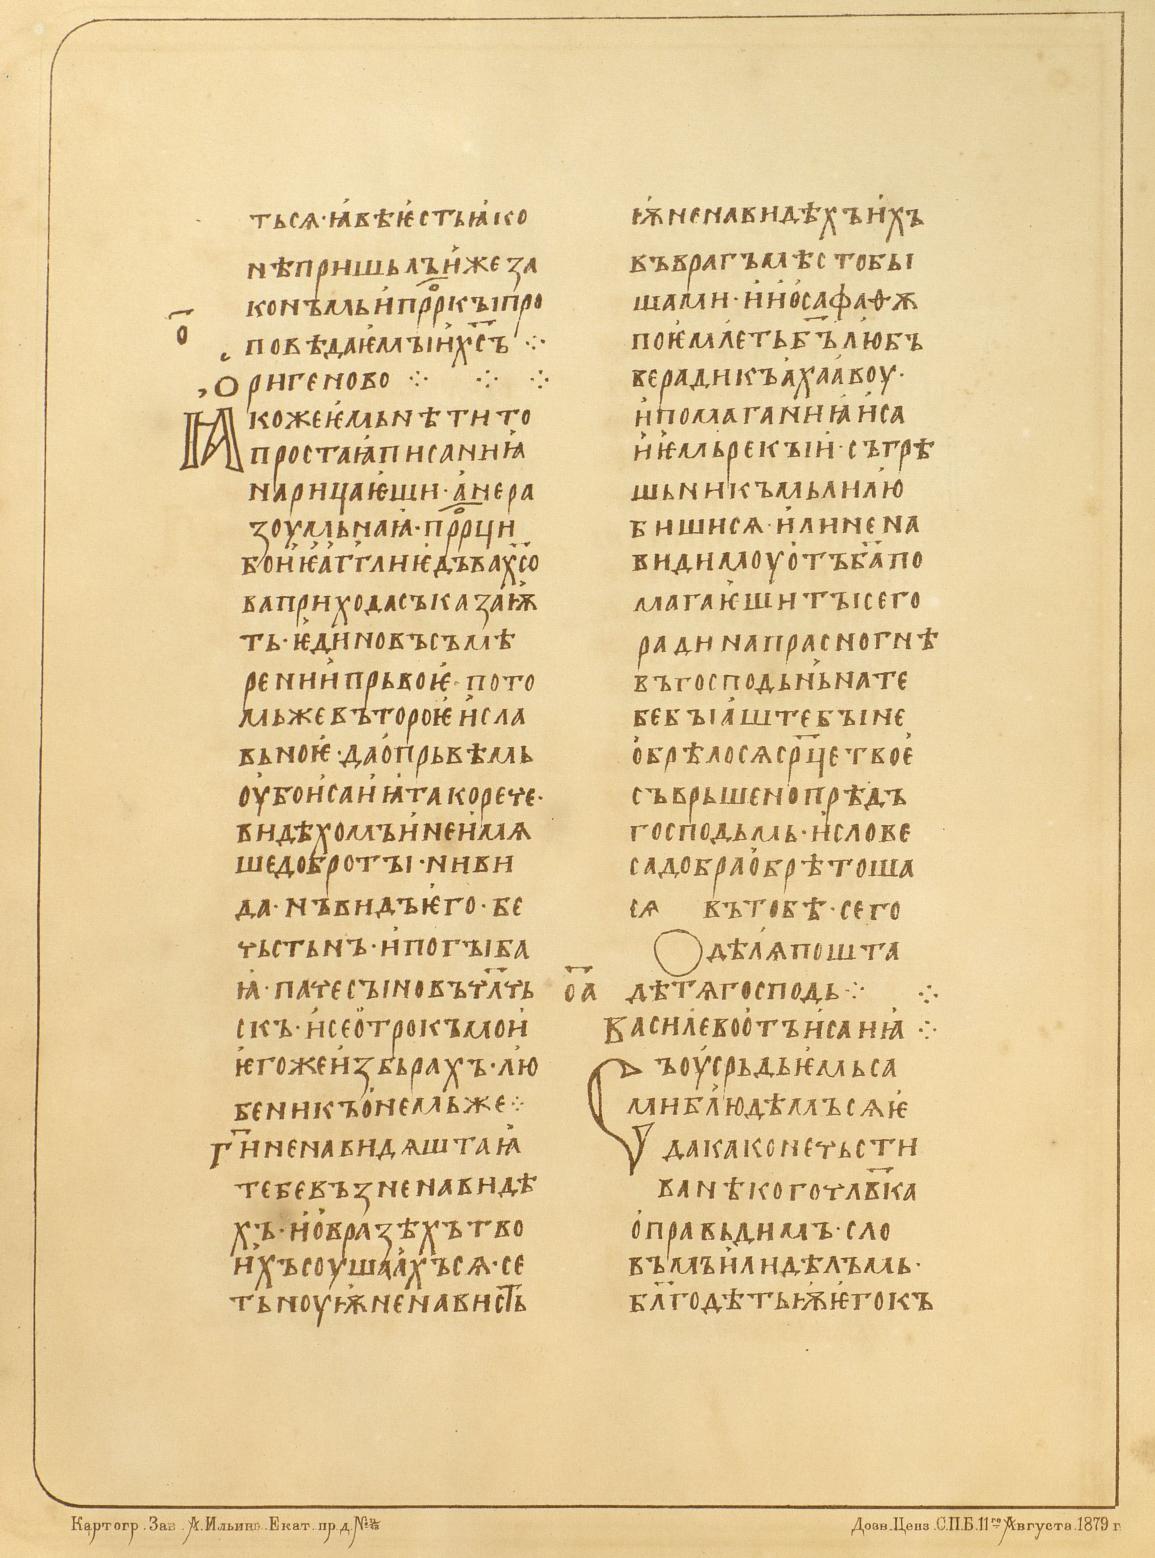 ться·ꙗвѣѥстьꙗко
нѣпришьлъиже за
конъмьипрр҃кꙑпро
повѣдаѥмꙑихс҃ъ ⁘
о҃
Оригеново ⁘ ⁘ ⁘
Ꙗкожеѥмьнѣтито
простаꙗписаниꙗ
нарицаѥши·анера
зоумьнаꙗ·прр҃ци
боиѥаггл҃иѥдъвахс҃о
ваприходасъказаѭ
ть·ѥдиновъсъмѣ
рениипрьвоѥ·пото
мьжевътороѥисла
вьноѥ·даопрьвѣмь
оубоисаиꙗтакорече·
видѣхомъинеимѧ
шедобротꙑ·ниви
да·нъвидъѥго·бе
чьстьнъ·ипогꙑба
ꙗ·пачесꙑновъчл҃чь
скъ·исеотрокъмои
ѥгожеизбьрахъ·лю
беникъонемьже⁘
Ги҃ненавидѧштаꙗ
тебевъзненавидѣ
хъ·иовразѣхътво
ихъсоушаахъсѧ·се
тьноуѭненависть
ѭненавидѣхъихъ
въврагъмѣстобꙑ
шами·ииосафаѳѫ
поѥмлетьб҃ълюбъ
верадикъахаавоу·
ипомаганиꙗиса
иѥмьрекꙑи·сътрѣ
шьникъмьлилю
бишисѧ·илинена
видимоуотъб҃апо
магаѥшитꙑсего
радинапрасногнѣ
въгосподьньнате
бебꙑаштебꙑне
обрѣлосѧср҃цетвое
съврьшенопрѣдъ
господьмь·ислове
садобраобрѣтоша
сѧ вътобѣ·сего
Одѣлѧпошта
о҃а
дѣтѧгосподь⁘ ⁘
Василевоотъисаиꙗ⁘
Съоусрьдьѥмьса
миблюдѣмъсѧѥ
дакаконечьсти
ванѣкогочл҃вка
оправьдимъ·сло
въмъилидѣлъмь·
бл҃годѣтьѭѥгокъ
Картогр. Зав. А. Ильина. Екат. пр. д. №
Дозв. Ценз. С.П.Б. 11го Августа. 1879 г.